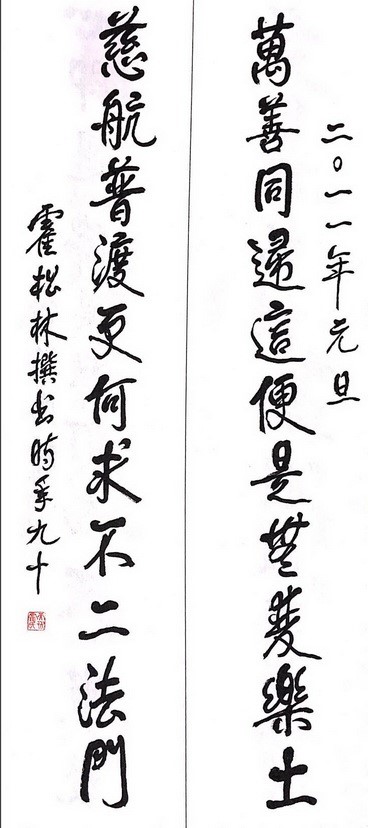 二〇一一年元旦
萬善同歸這便是無雙樂土
慈航普渡更何求不二法門
霍松林撰书時年九十